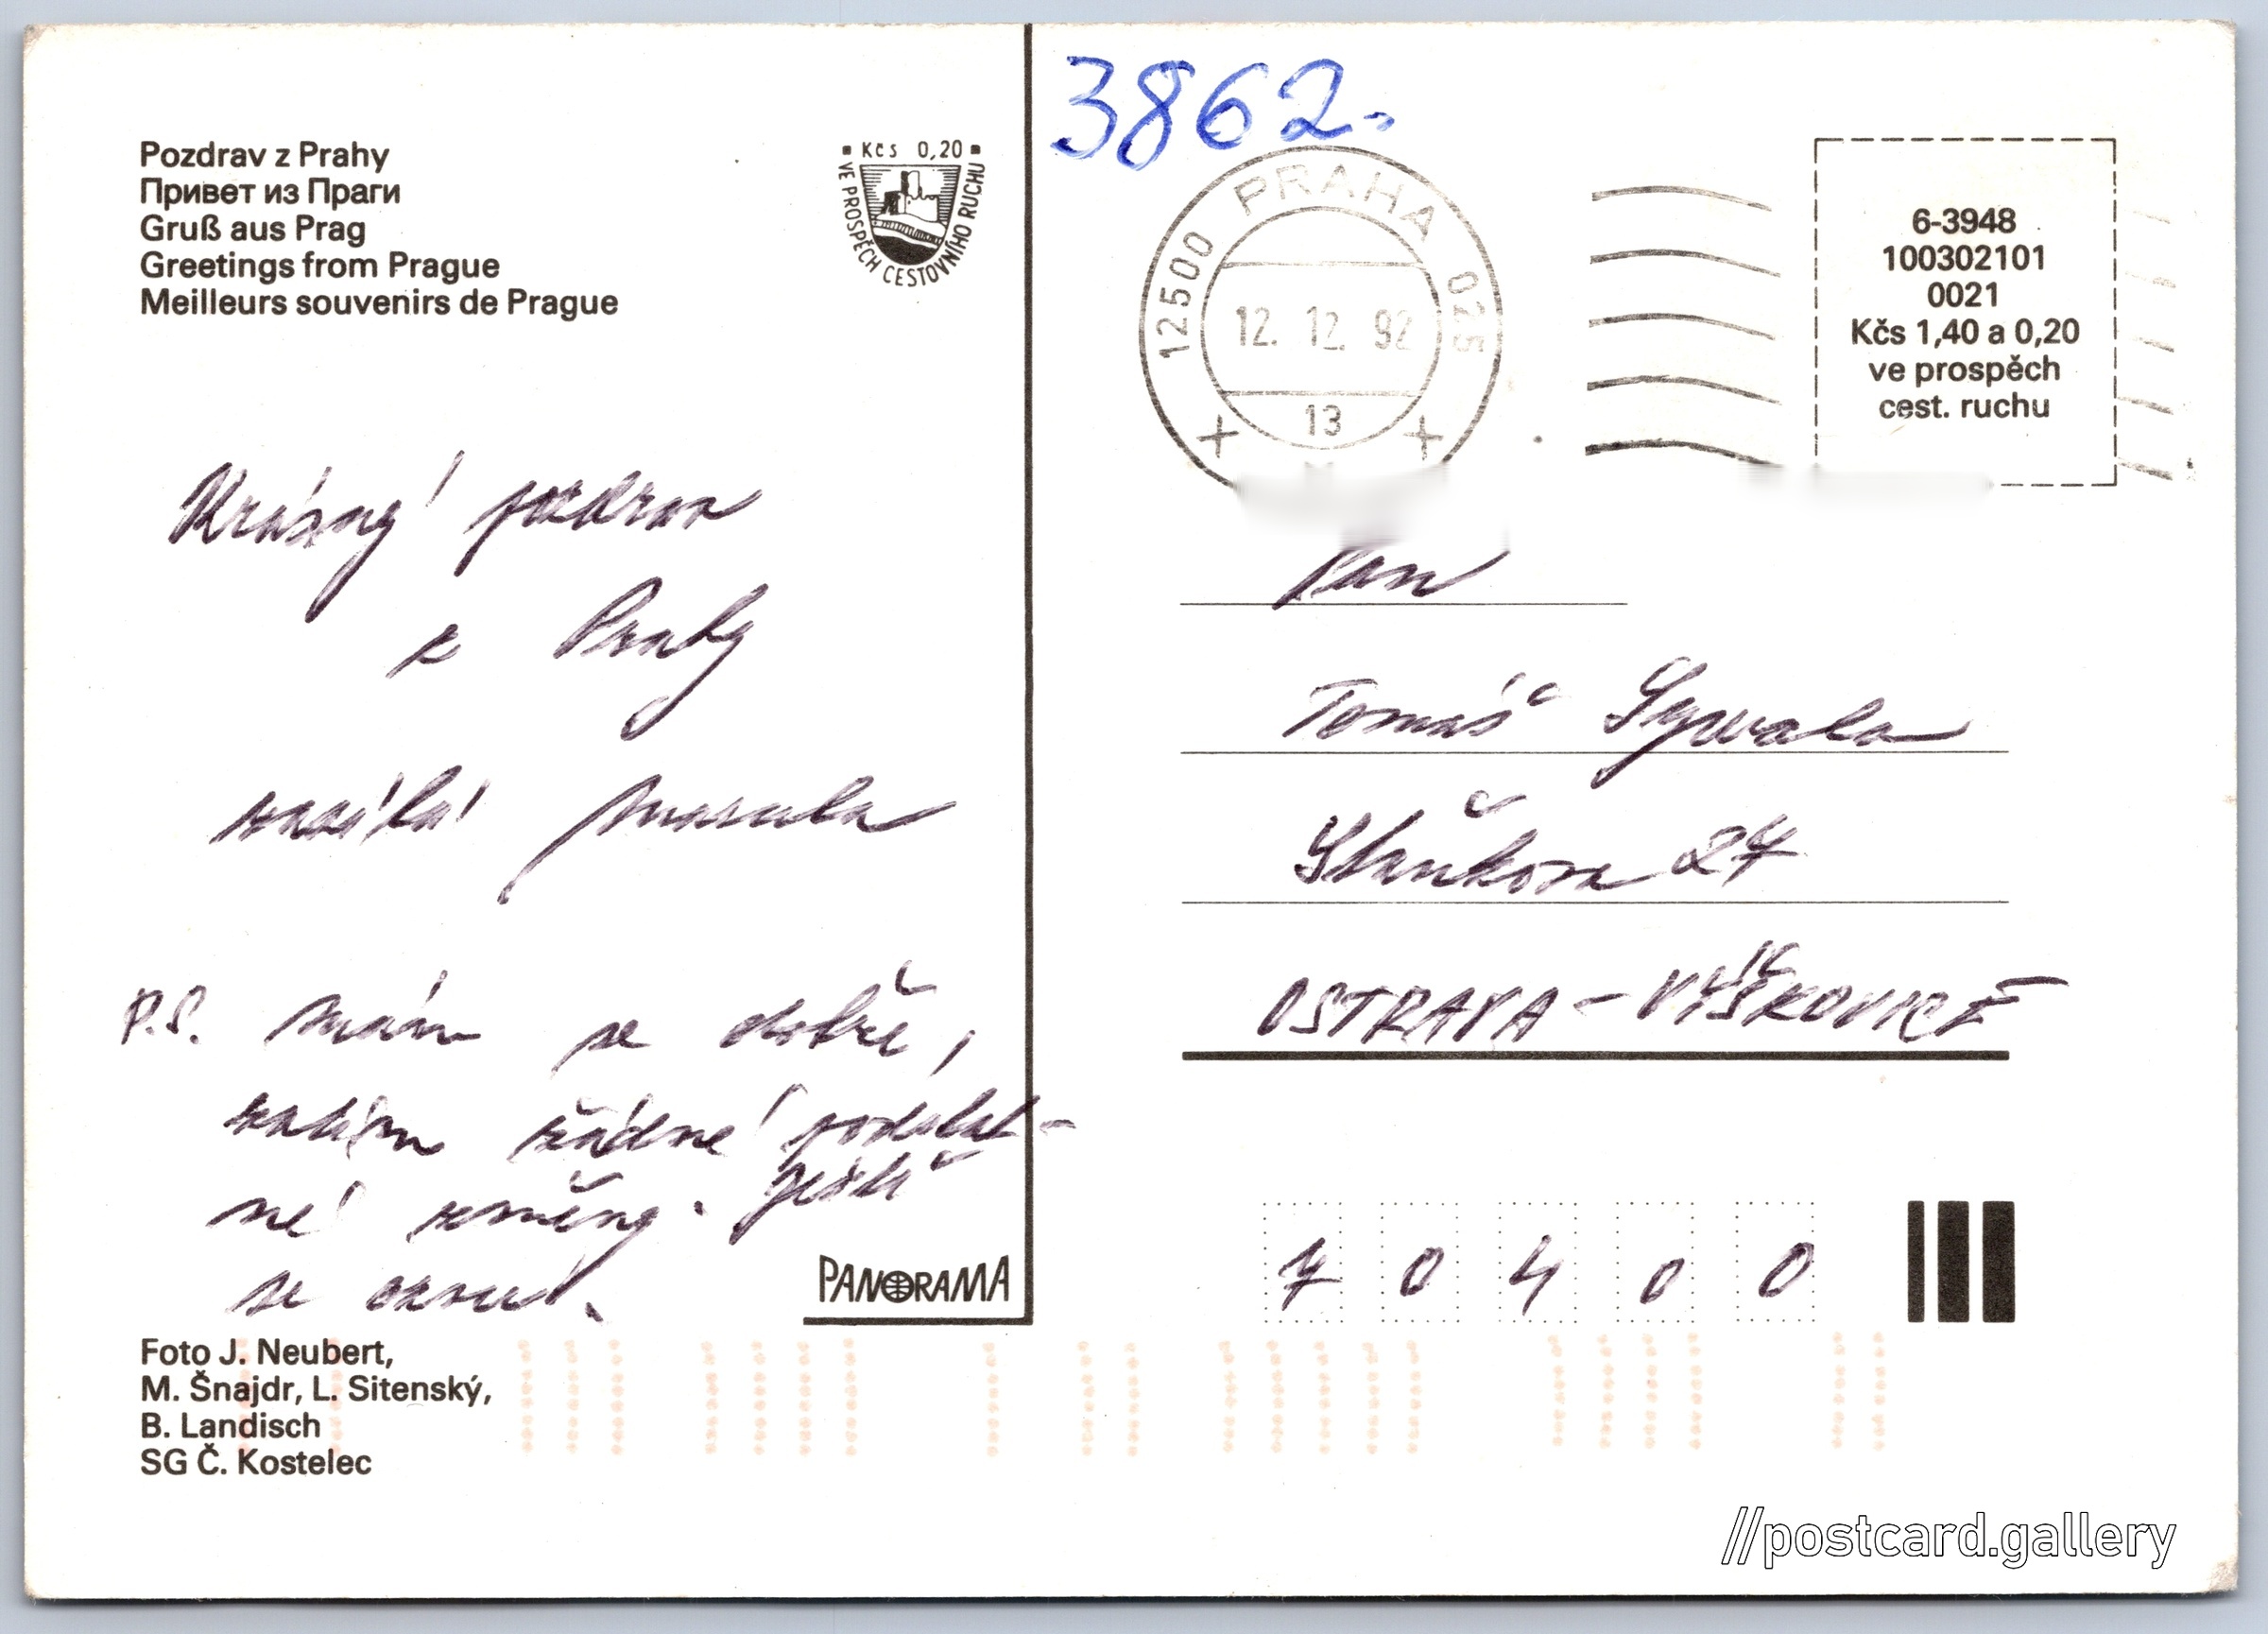 Pozdrav z Prahy
Привет из Праги
Gruß aus Prag
Greetings from Prague
Meilleurs souvenirs de Prague
Kčs 0,20
VE PROSPĚCH CESTOVNÍHO RUCHU
Krásný pozdrav
z Prahy
zasílá
P.S. mám se dobře,
zatím žádné podstat-
né změny. Ještě
se ozvu.
PANORAMA
Foto J. Neubert,
M. Šnajdr, L. Sitenský,
B. Landisch
SG Č. Kostelec
3862.
12500 PRAHA 025
12. 12. 92
13
6-3948
100302101
0021
Kčs 1,40 a 0,20
ve prospěch
cest. ruchu
Pan
Tomáš Sywala
Staňkova 24
OSTRAVA - VÝŠKOVICE
70400
//postcard.gallery